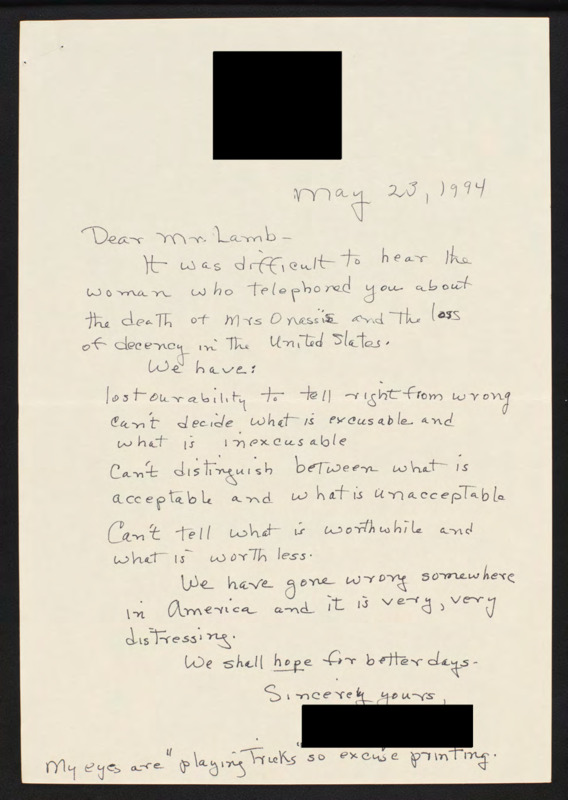 May 23, 1994
Dear Mr. Lamb-
It was difficult to hear the
woman who telephoned you about
the death of Mrs Onassis and the loss
of decency in the United States.
We have:
lost our ability to tell right from wrong
can't decide what is excusable and
what is inexcusable
Can't distinguish between what is
acceptable and what is unacceptable
Can't tell what is worthwhile and
what is worthless.
We have gone wrong somewhere
in America and it is very, very
distressing.
We shall hope for better days-
Sincerely yours,
My eyes are "playing Tricks" so excuse printing.